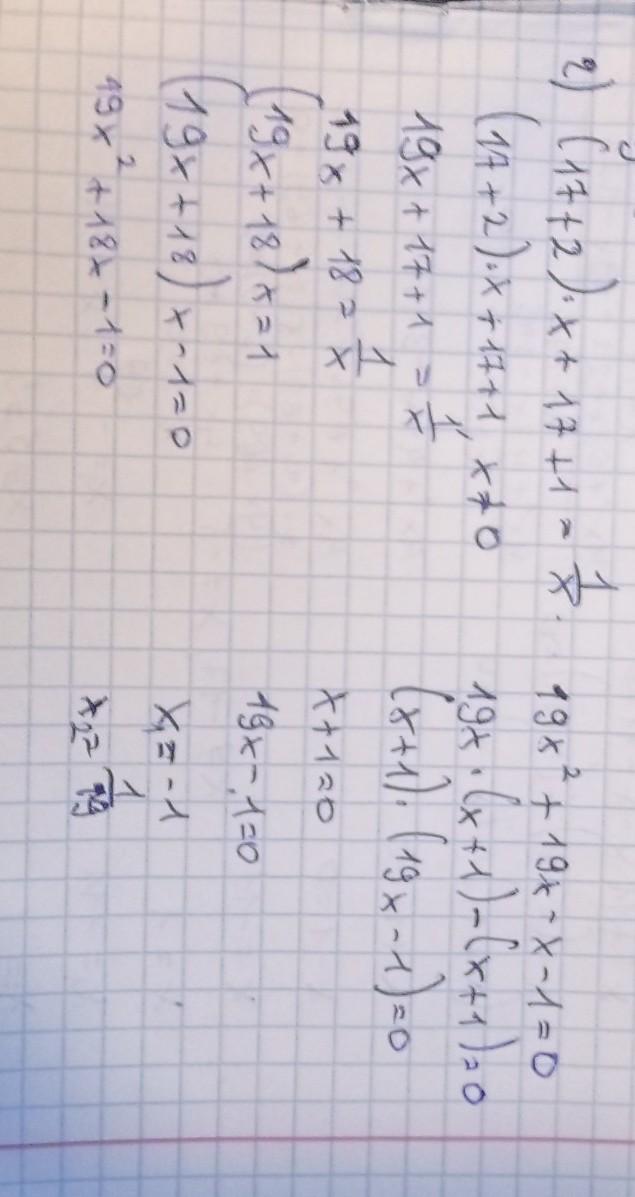 2) (17+2)·x+17+1=1/x.
(17+2)·x+17+1, x≠0
19x+17+1=1/x
19x+18=1/x
(19x+18)x=1
(19x+18)x-1=0
19x²+18x-1=0
19x²+19x-x-1=0
19x·(x+1)-(x+1)=0
(x+1)·(19x-1)=0
x+1=0
19x-1=0
x₁=-1
x₂=1/19